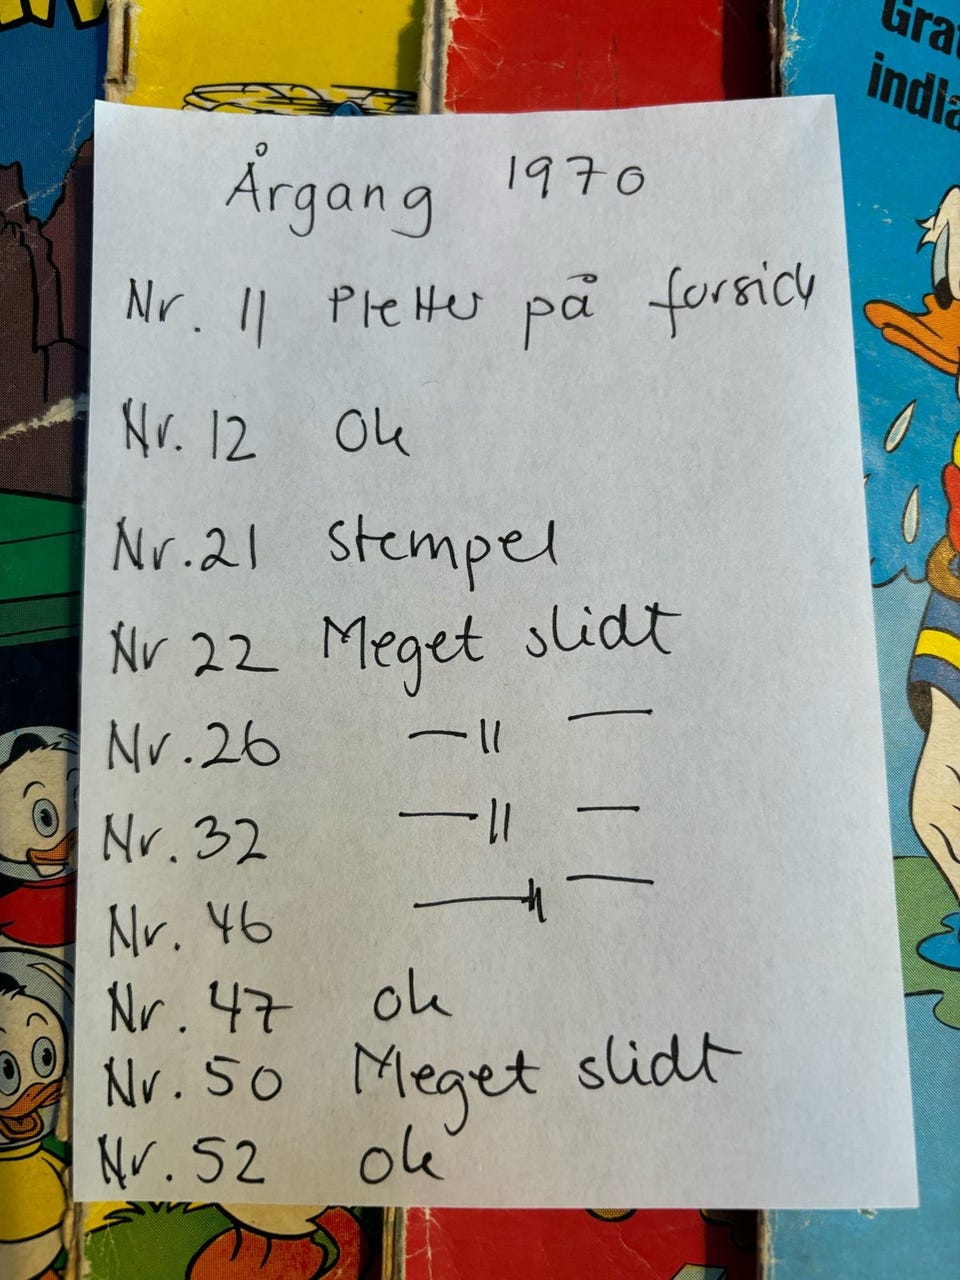 Grat
indla
Årgang 1970
Nr. 11 Pletter på forside
Nr. 12 Ok
Nr. 21 Stempel
Nr 22 Meget slidt
Nr. 26 —11 —
Nr. 32 —11 —
Nr. 46 —11 —
Nr. 47 ok
Nr. 50 Meget slidt
Nr. 52 ok